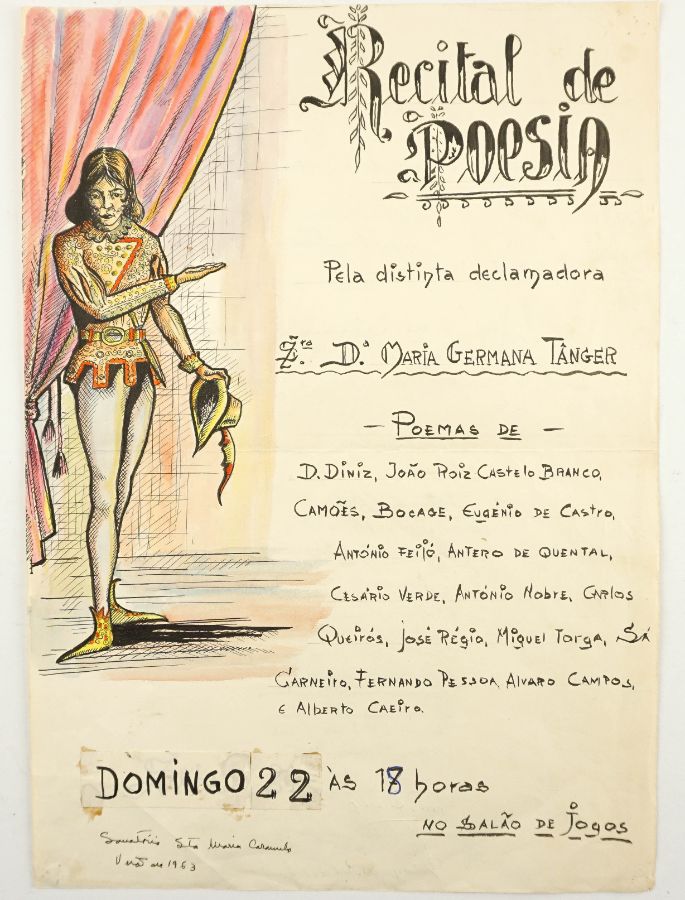 Recital de
Poesia
Pela distinta declamadora
D.ª Maria Germana Tânger
— Poemas de —
D. Diniz, João Roiz Castelo Branco,
Camões, Bocage, Eugénio de Castro,
António Feijó, Antero de Quental,
Cesário Verde, António Nobre, Carlos
Queirós, José Régio, Miguel Torga, Sá
Carneiro, Fernando Pessoa, Alvaro Campos,
e Alberto Caeiro.
Domingo 22 às 18 horas
no Salão de Jogos
Sanatório Sta Maria Caramulo
Verão de 1953